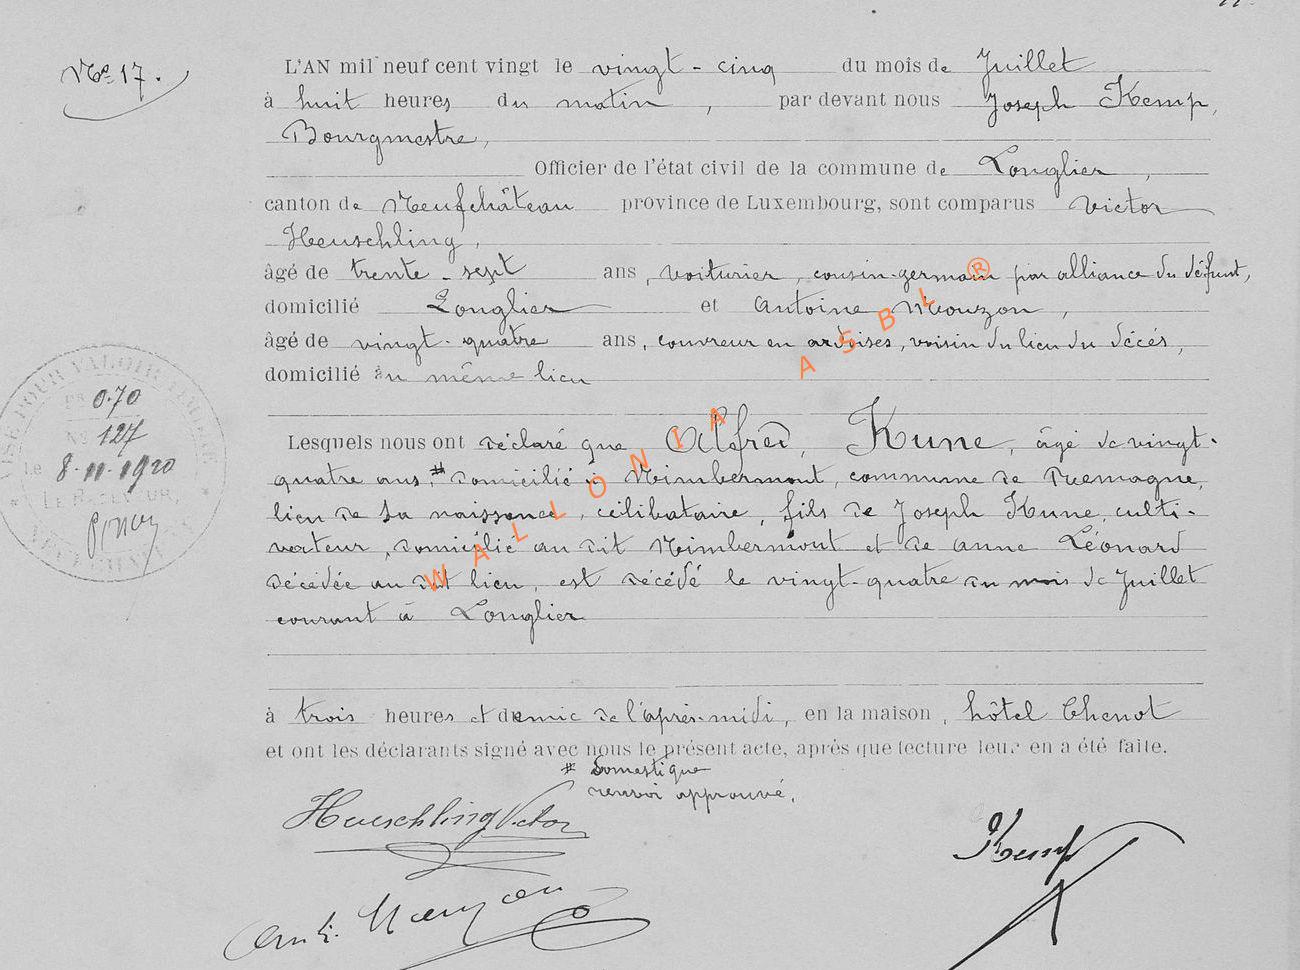 No 17.
L'AN mil neuf cent vingt le vingt-cinq du mois de Juillet
à huit heures du matin, par devant nous Joseph Kemp,
Bourgmestre,
Officier de l'état civil de la commune de Longlier,
canton de Neufchâteau province de Luxembourg, sont comparus Victor
Heuschling,
âgé de trente-sept ans, voiturier, cousin-germain par alliance du défunt,
domicilié Longlier et Antoine Mouzon,
âgé de vingt-quatre ans, couvreur en ardoises, voisin du lieu du décès,
domicilié au même lieu
Lesquels nous ont déclaré que Alfred, Kune, âgé de vingt-
quatre ans,# domicilié à Nimbermont, commune de Tremagne,
lieu de sa naissance, célibataire, fils de Joseph Kune, culti-
vateur, domicilié au dit Nimbermont et de Anne Léonard
décédée au dit lieu, est décédé le vingt-quatre du mois de Juillet
courant à Longlier
à trois heures et demie de l'après-midi, en la maison, hôtel Chenot
et ont les déclarants signé avec nous le présent acte, après que lecture leur en a été faite.
# domestique
renvoi approuvé.
Heuschling Victor
Kemp
Ant. Mouzon
VISÉ POUR VALOIR TIMBRE
Frs 0.70
No 127
Le 8-11-1920
LE RECEVEUR,
NEUFCHATEAU
WALLONIA ASBL ®